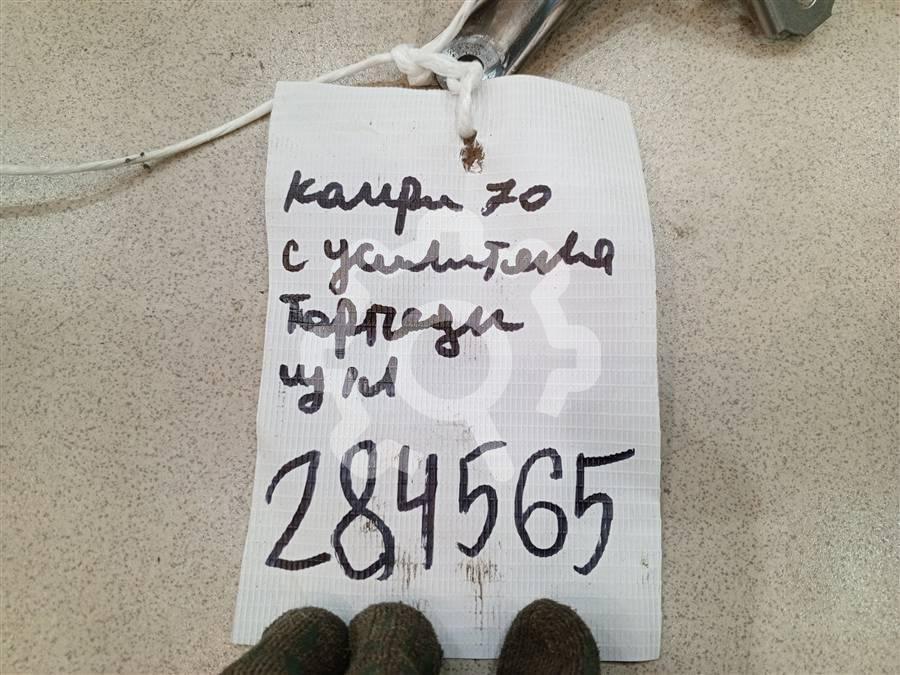 камри 70
с усилителя
Торпеды
284565